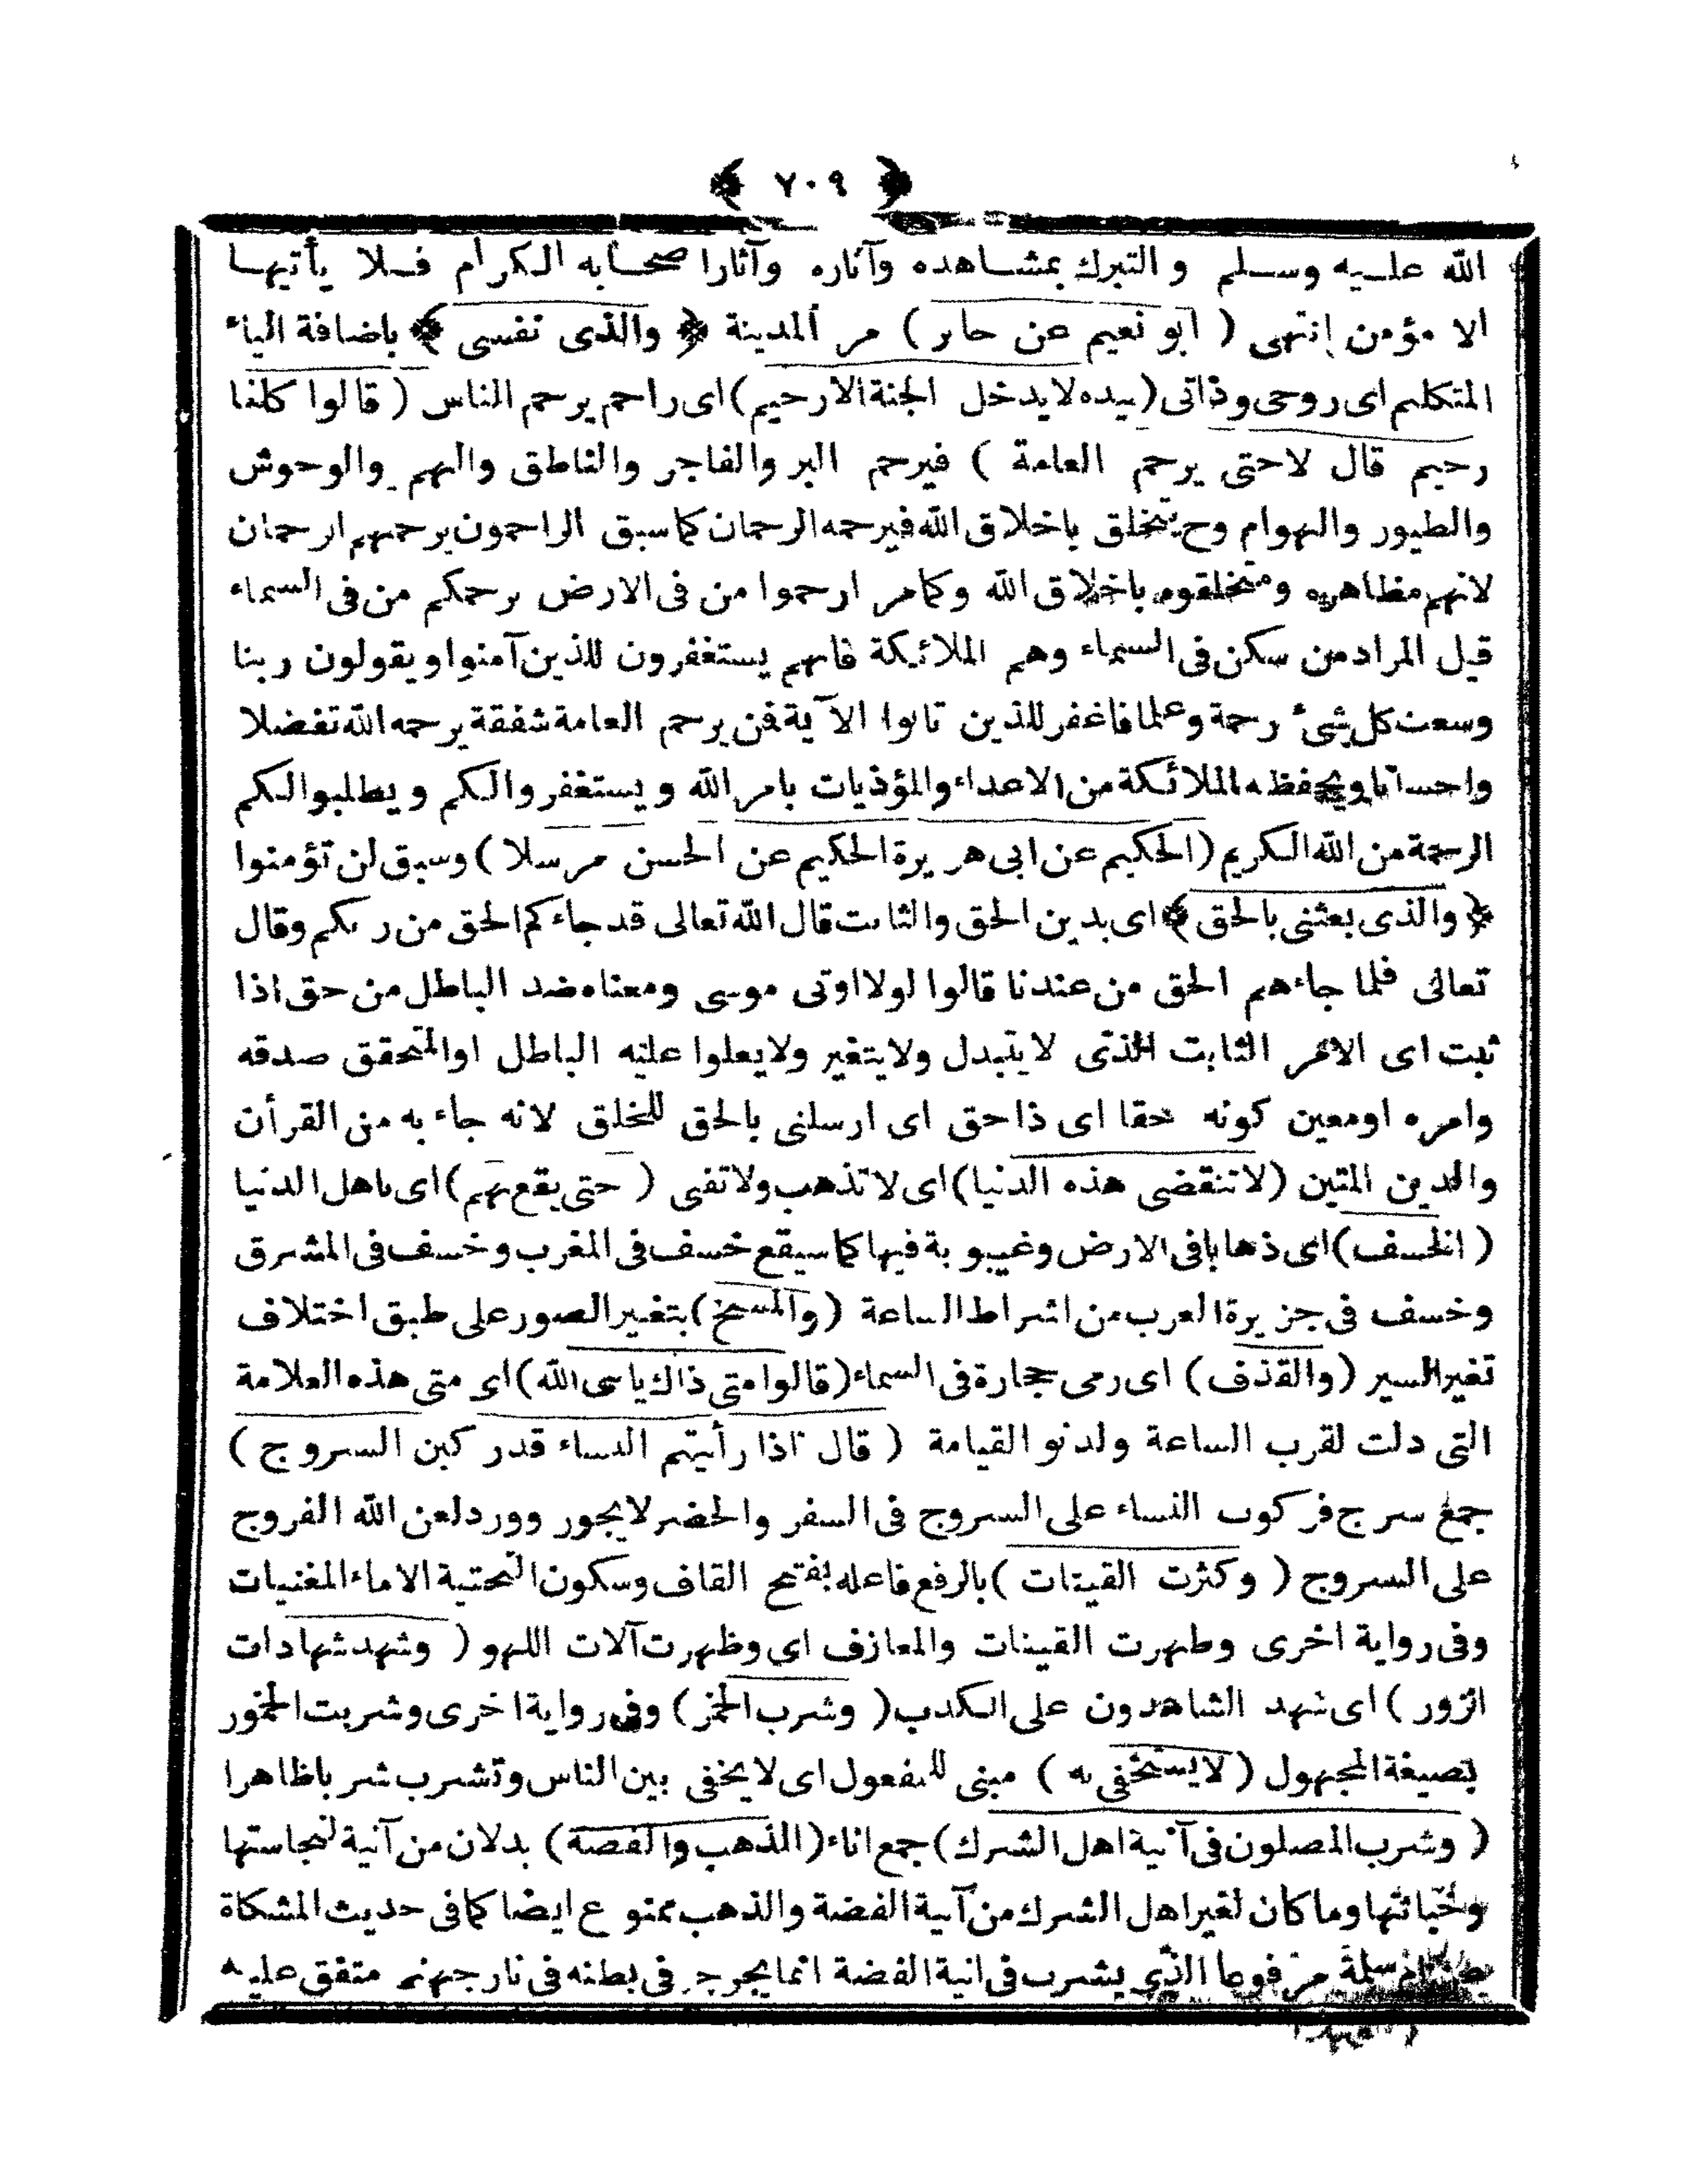 ﴿ ٧٠٩ ﴾
الله عليه وسلم والتبرك بمشاهده وآثاره وآثارا صحابه الكرام فلا يأتيها
الا مؤمن إنتهى ( ابو نعيم عن جابر ) مر المدينة ﴿ والذى نفسى ﴾ باضافة الياء
المتكلم اى روحى وذاتى ( بيده لايدخل الجنة الارحيم ) اى راحم يرحم الناس ( قالوا كلنا
رحيم قال لاحتى يرحم العامة ) فيرحم البر والفاجر والناطق والبهم والوحوش
والطيور والهوام وح يتخلق باخلاق الله فيرحمه الرحمان كما سبق الراحمون يرحمهم ارحمان
لانهم مظاهره ومتخلقوه باخلاق الله وكمامر ارحموا من فى الارض يرحمكم من فى السماء
قيل المراد من سكن فى السماء وهم الملائكة فانهم يستغفرون للذين آمنوا ويقولون ربنا
وسعت كل شىء رحمة وعلما فاغفر للذين تابوا الآية فمن يرحم العامة شفقة يرحمه الله تفضلا
واحسانا ويحفظه الملائكة من الاعداء والمؤذيات بامر الله ويستغفروالكم ويطلبوالكم
الرحمة من الله الكريم ( الحكيم عن ابى هريرة الحكيم عن الحسن مرسلا ) وسبق لن تؤمنوا
﴿ والذى بعثنى بالحق ﴾ اى بدين الحق والثابت قال الله تعالى قد جاءكم الحق من ربكم وقال
تعالى فلما جاءهم الحق من عندنا قالوا لولا اوتى موسى ومعناه ضد الباطل من حق اذا
ثبت اى الامر الثابت الذى لايتبدل ولايتغير ولايعلوا عليه الباطل اوالمتحقق صدقه
وامره اومعين كونه حقا اى ذاحق اى ارسلنى بالحق للخلق لانه جاء به من القرأن
والدين المتين ( لاتنقضى هذه الدنيا ) اى لاتذهب ولاتفنى ( حتى يقع بهم ) اى باهل الدنيا
( الخسف ) اى ذهابا فى الارض وغيبوبة فيها كما سيقع خسف فى المغرب وخسف فى المشرق
وخسف فى جزيرة العرب من اشراط الساعة ( والمسخ ) بتغير الصور على طبق اختلاف
تغير السير ( والقذف ) اى رمى حجارة فى السماء ( قالوا متى ذاك يانبى الله ) اى متى هذه العلامة
التى دلت لقرب الساعة ولدنو القيامة ( قال اذا رأيتم النساء قدر كبن السروج )
جمع سرج فركوب النساء على السروج فى السفر والحضر لايجوز وورد لعن الله الفروج
على السروج ( وكثرت القينات ) بالرفع فاعله بفتح القاف وسكون التحتية الاماء المغنيات
وفى رواية اخرى وظهرت القينات والمعازف اى وظهرت آلات اللهو ( وشهد شهادات
الزور ) اى شهد الشاهدون على الكذب ( وشرب الخمر ) وفى رواية اخرى وشربت الخمور
بصيغة المجهول ( لايستخفى به ) مبنى للمفعول اى لايخفى بين الناس وتشرب شربا ظاهرا
( وشرب المصلون فى آنية اهل الشرك ) جمع اناء ( الذهب والفضة ) بدلان من آنية لنجاستها
وخباثتها وما كان لغير اهل الشرك من آنية الفضة والذهب ممنوع ايضا كما فى حديث المشكاة
سلمة مرفوعا الذى يشرب فى انية الفضة انما يجرجر فى بطنه فى نار جهنم متفق عليه